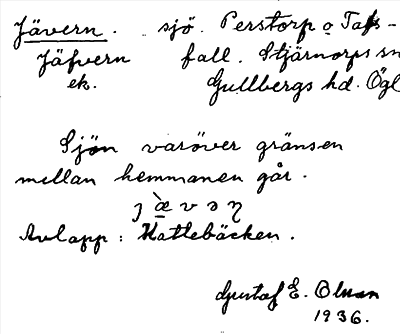 Jävern. sjö. Perstorp o Tafs-
Jäfvern fall. Stjärnorps sn
ek. Gullbergs hd. Ögl
Sjön varöver gränsen
mellan hemmanen går.
j æ v ə ɳ
Avlapp: Kattebäcken.
Gustaf E. Olsson
1936.